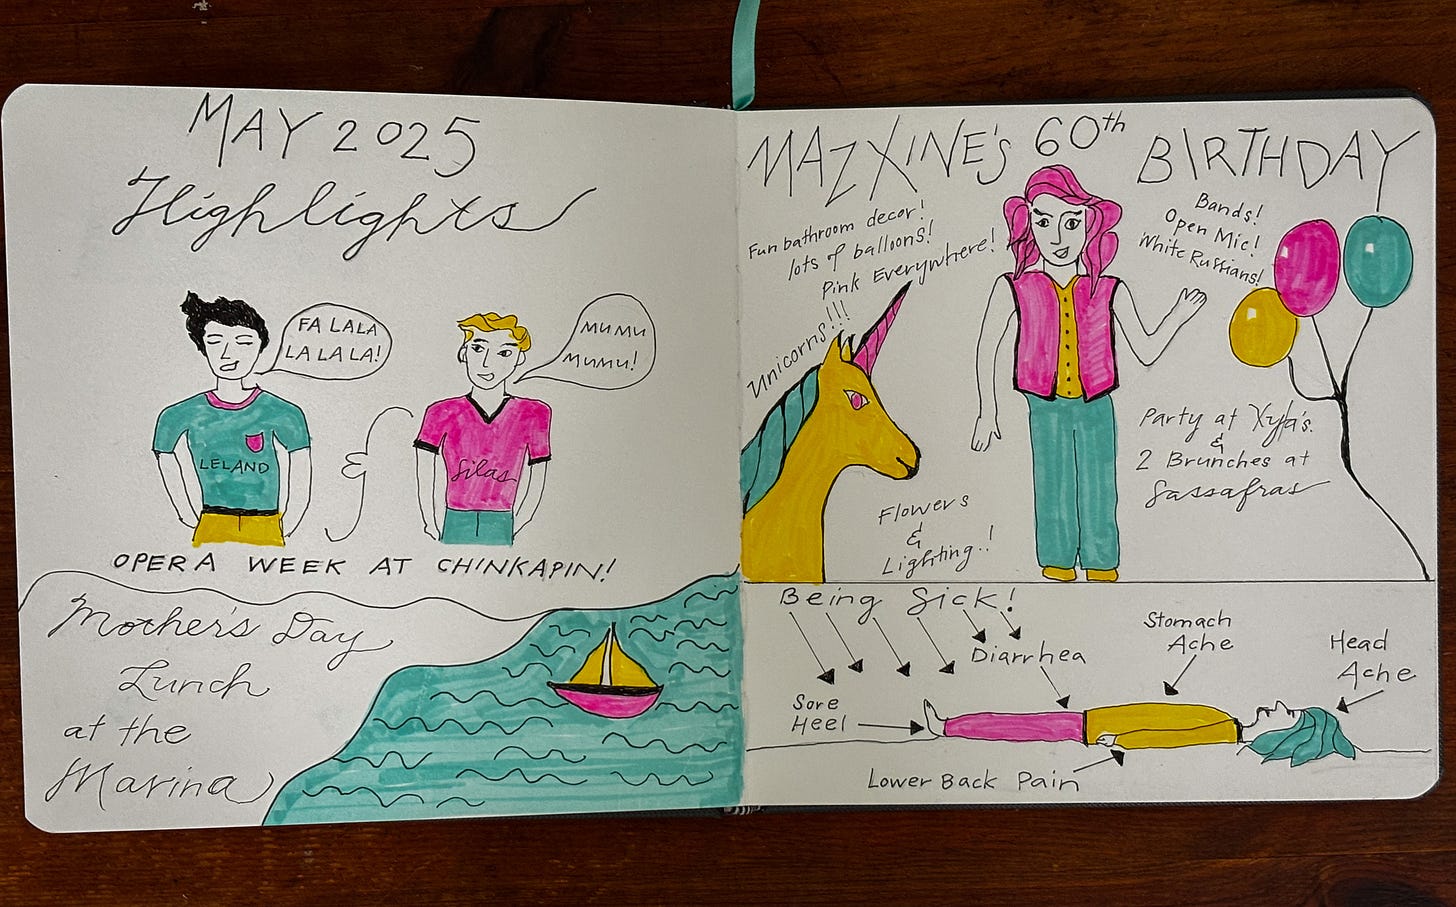 MAY 2025
Highlights
FA LALA
LA LA LA!
MUMU
MUMU!
LELAND
&
Silas
OPERA WEEK AT CHINKAPIN!
Mother's Day
Lunch
at the
Marina
MAZXINE'S 60th BIRTHDAY
Fun bathroom decor!
lots of balloons!
Pink Everywhere!
Unicorns!!!
Bands!
Open Mic!
White Russians!
Flowers
&
Lighting!!
Party at Xyla's
&
2 Brunches at
Sassafras
Being Sick!
Diarrhea
Stomach
Ache
Head
Ache
Sore
Heel
Lower Back Pain